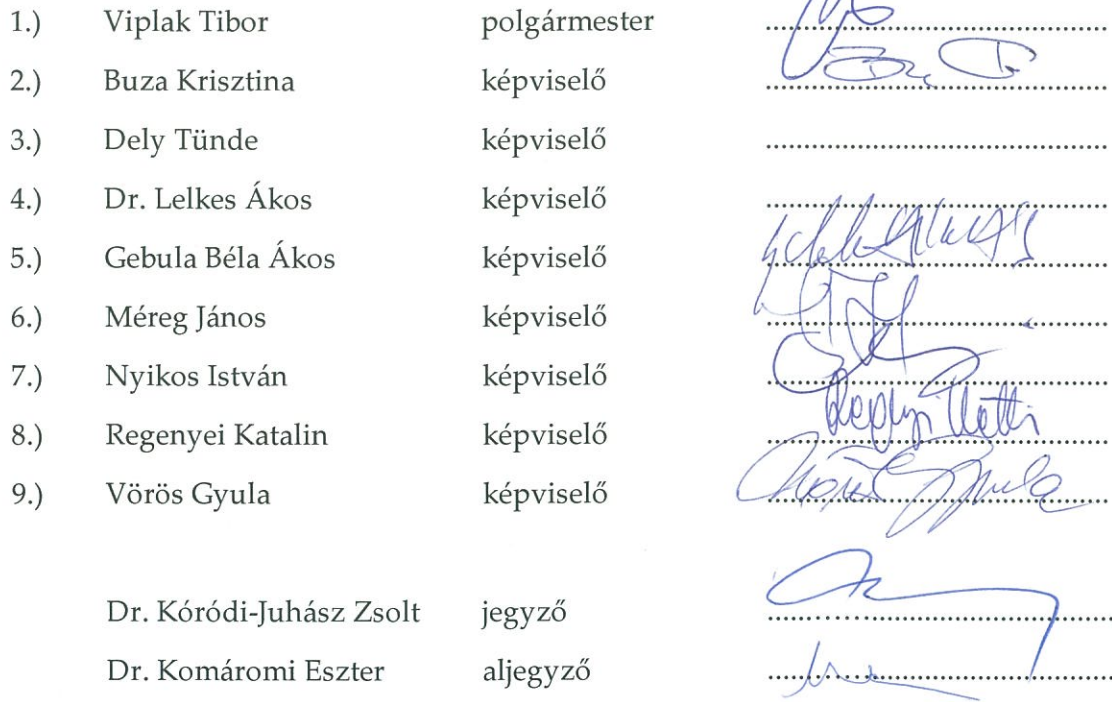 1.) Viplak Tibor polgármester
2.) Buza Krisztina képviselő
3.) Dely Tünde képviselő
4.) Dr. Lelkes Ákos képviselő
5.) Gebula Béla Ákos képviselő
6.) Méreg János képviselő
7.) Nyikos István képviselő
8.) Regenyei Katalin képviselő
9.) Vörös Gyula képviselő
Dr. Kóródi-Juhász Zsolt jegyző
Dr. Komáromi Eszter aljegyző